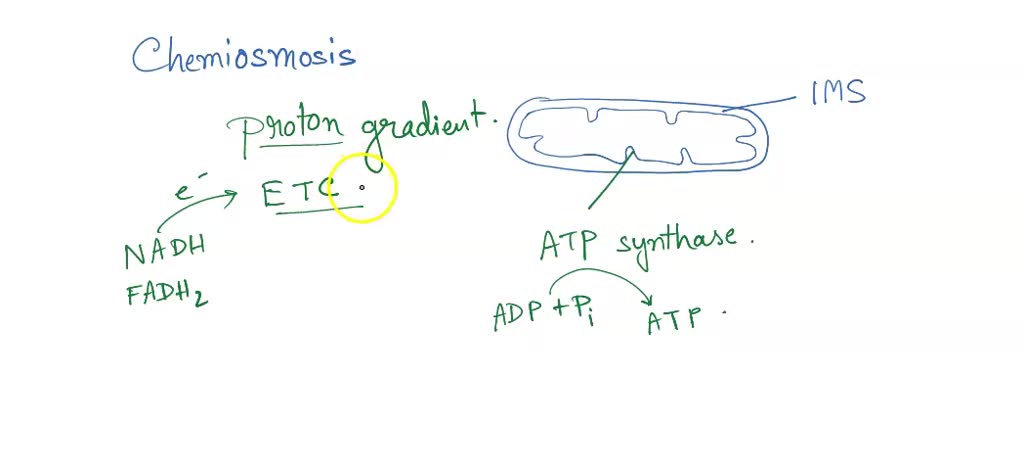 Chemiosmosis
IMS
Proton gradient.
e⁻
ETC
NADH
FADH₂
ATP synthase.
ADP + Pi
ATP.